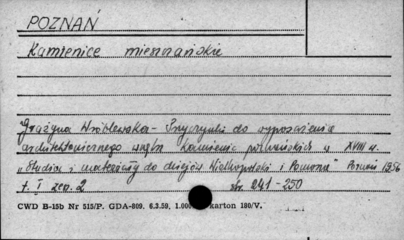 POZNAŃ
Kamienice mieszczańskie
Grażyna Wróblewska - Przyczynki do wyposażenia
architektonicznego wnętrz kamienic poznańskich w XVIII w.
„Studia i materiały do dziejów Wielkopolski i Pomorza" Poznań 1956
t. I zesz. 2 str. 241-250
CWD B-15b Nr 515/P. GDA-809. 6.3.59, 1.000 karton 180/V.